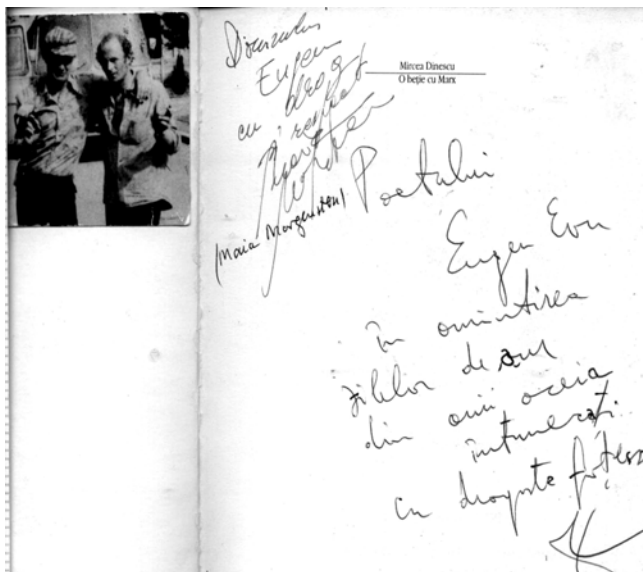 Domnului
Eugen
cu drag
și respect
(Maia Morgenstern)
Mircea Dinescu
O beție cu Marx
Poetului
Eugen Evu
în amintirea
zilelor de aur
din anii aceia
întunecați.
cu dragoste frățească